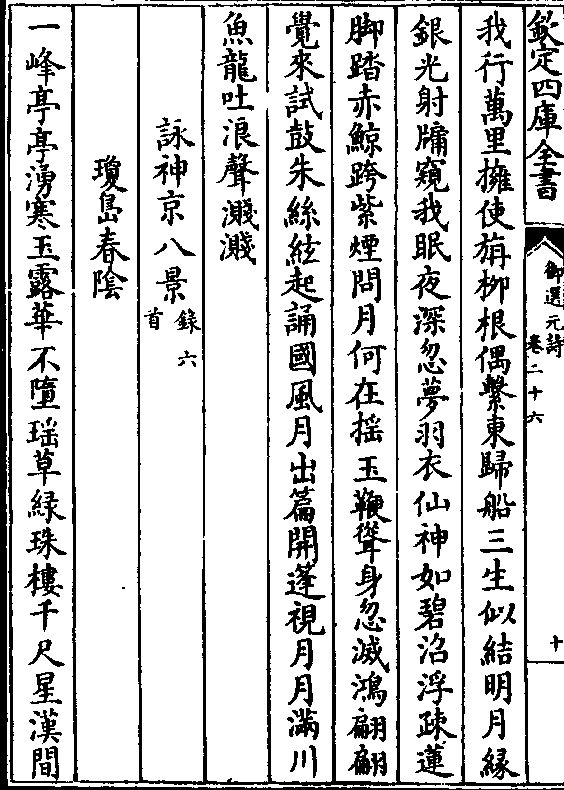 欽定四庫全書
御選元詩
卷二十六
十
我行萬里擁使旃柳根偶繫東歸船三生似結明月縁
銀光射牖窺我眠夜深忽夢羽衣仙神如碧沼浮疎蓮
脚踏赤鯨跨紫煙問月何在揺玉鞭聳身忽滅鴻翩翩
覺來試鼓朱絲絃起誦國風月出篇開蓬視月月滿川
魚龍吐浪聲濺濺
詠神京八景錄六首
瓊島春陰
一峰亭亭湧寒玉露華不墮瑶草緑珠樓千尺星漢間